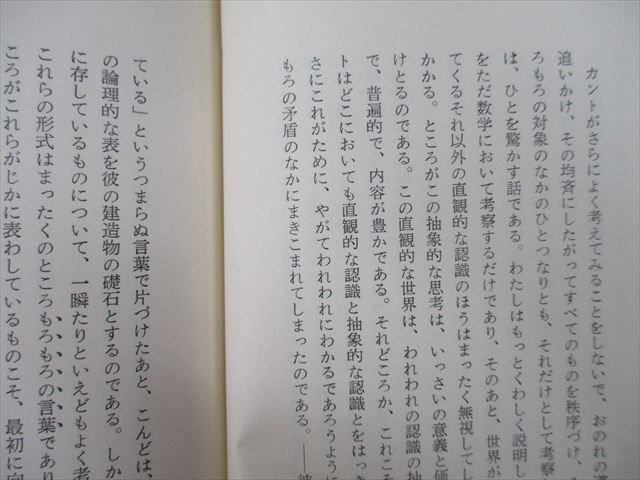 カントがさらによく考えてみることをしないで、おのれの道
追いかけ、その均斉にしたがってすべてのものを秩序づけ、
ろもろの対象のなかのひとつなりとも、それだけとして考察
は、ひとを驚かす話である。わたしはもっとくわしく説明し
をただ数学において考察するだけであり、そのあと、世界が
てくるそれ以外の直観的な認識のほうはまったく無視してし
かかる。ところがこの抽象的な思考は、いっさいの意義と価
けとるのである。この直観的な世界は、われわれの認識の抽
で、普遍的で、内容が豊かである。それどころか、これこそ
トはどこにおいても直観的な認識と抽象的な認識とをはっき
さにこれがために、やがてわれわれにわかるであろうように
もろの矛盾のなかにまきこまれてしまったのである。――彼
ている」というつまらぬ言葉で片づけたあと、こんどは、
の論理的な表を彼の建造物の礎石とするのである。しか
に存しているものについて、一瞬たりといえどもよく考
これらの形式はまったくのところもろもろの言葉であり
ころがこれらがじかに表わしているものこそ、最初に向